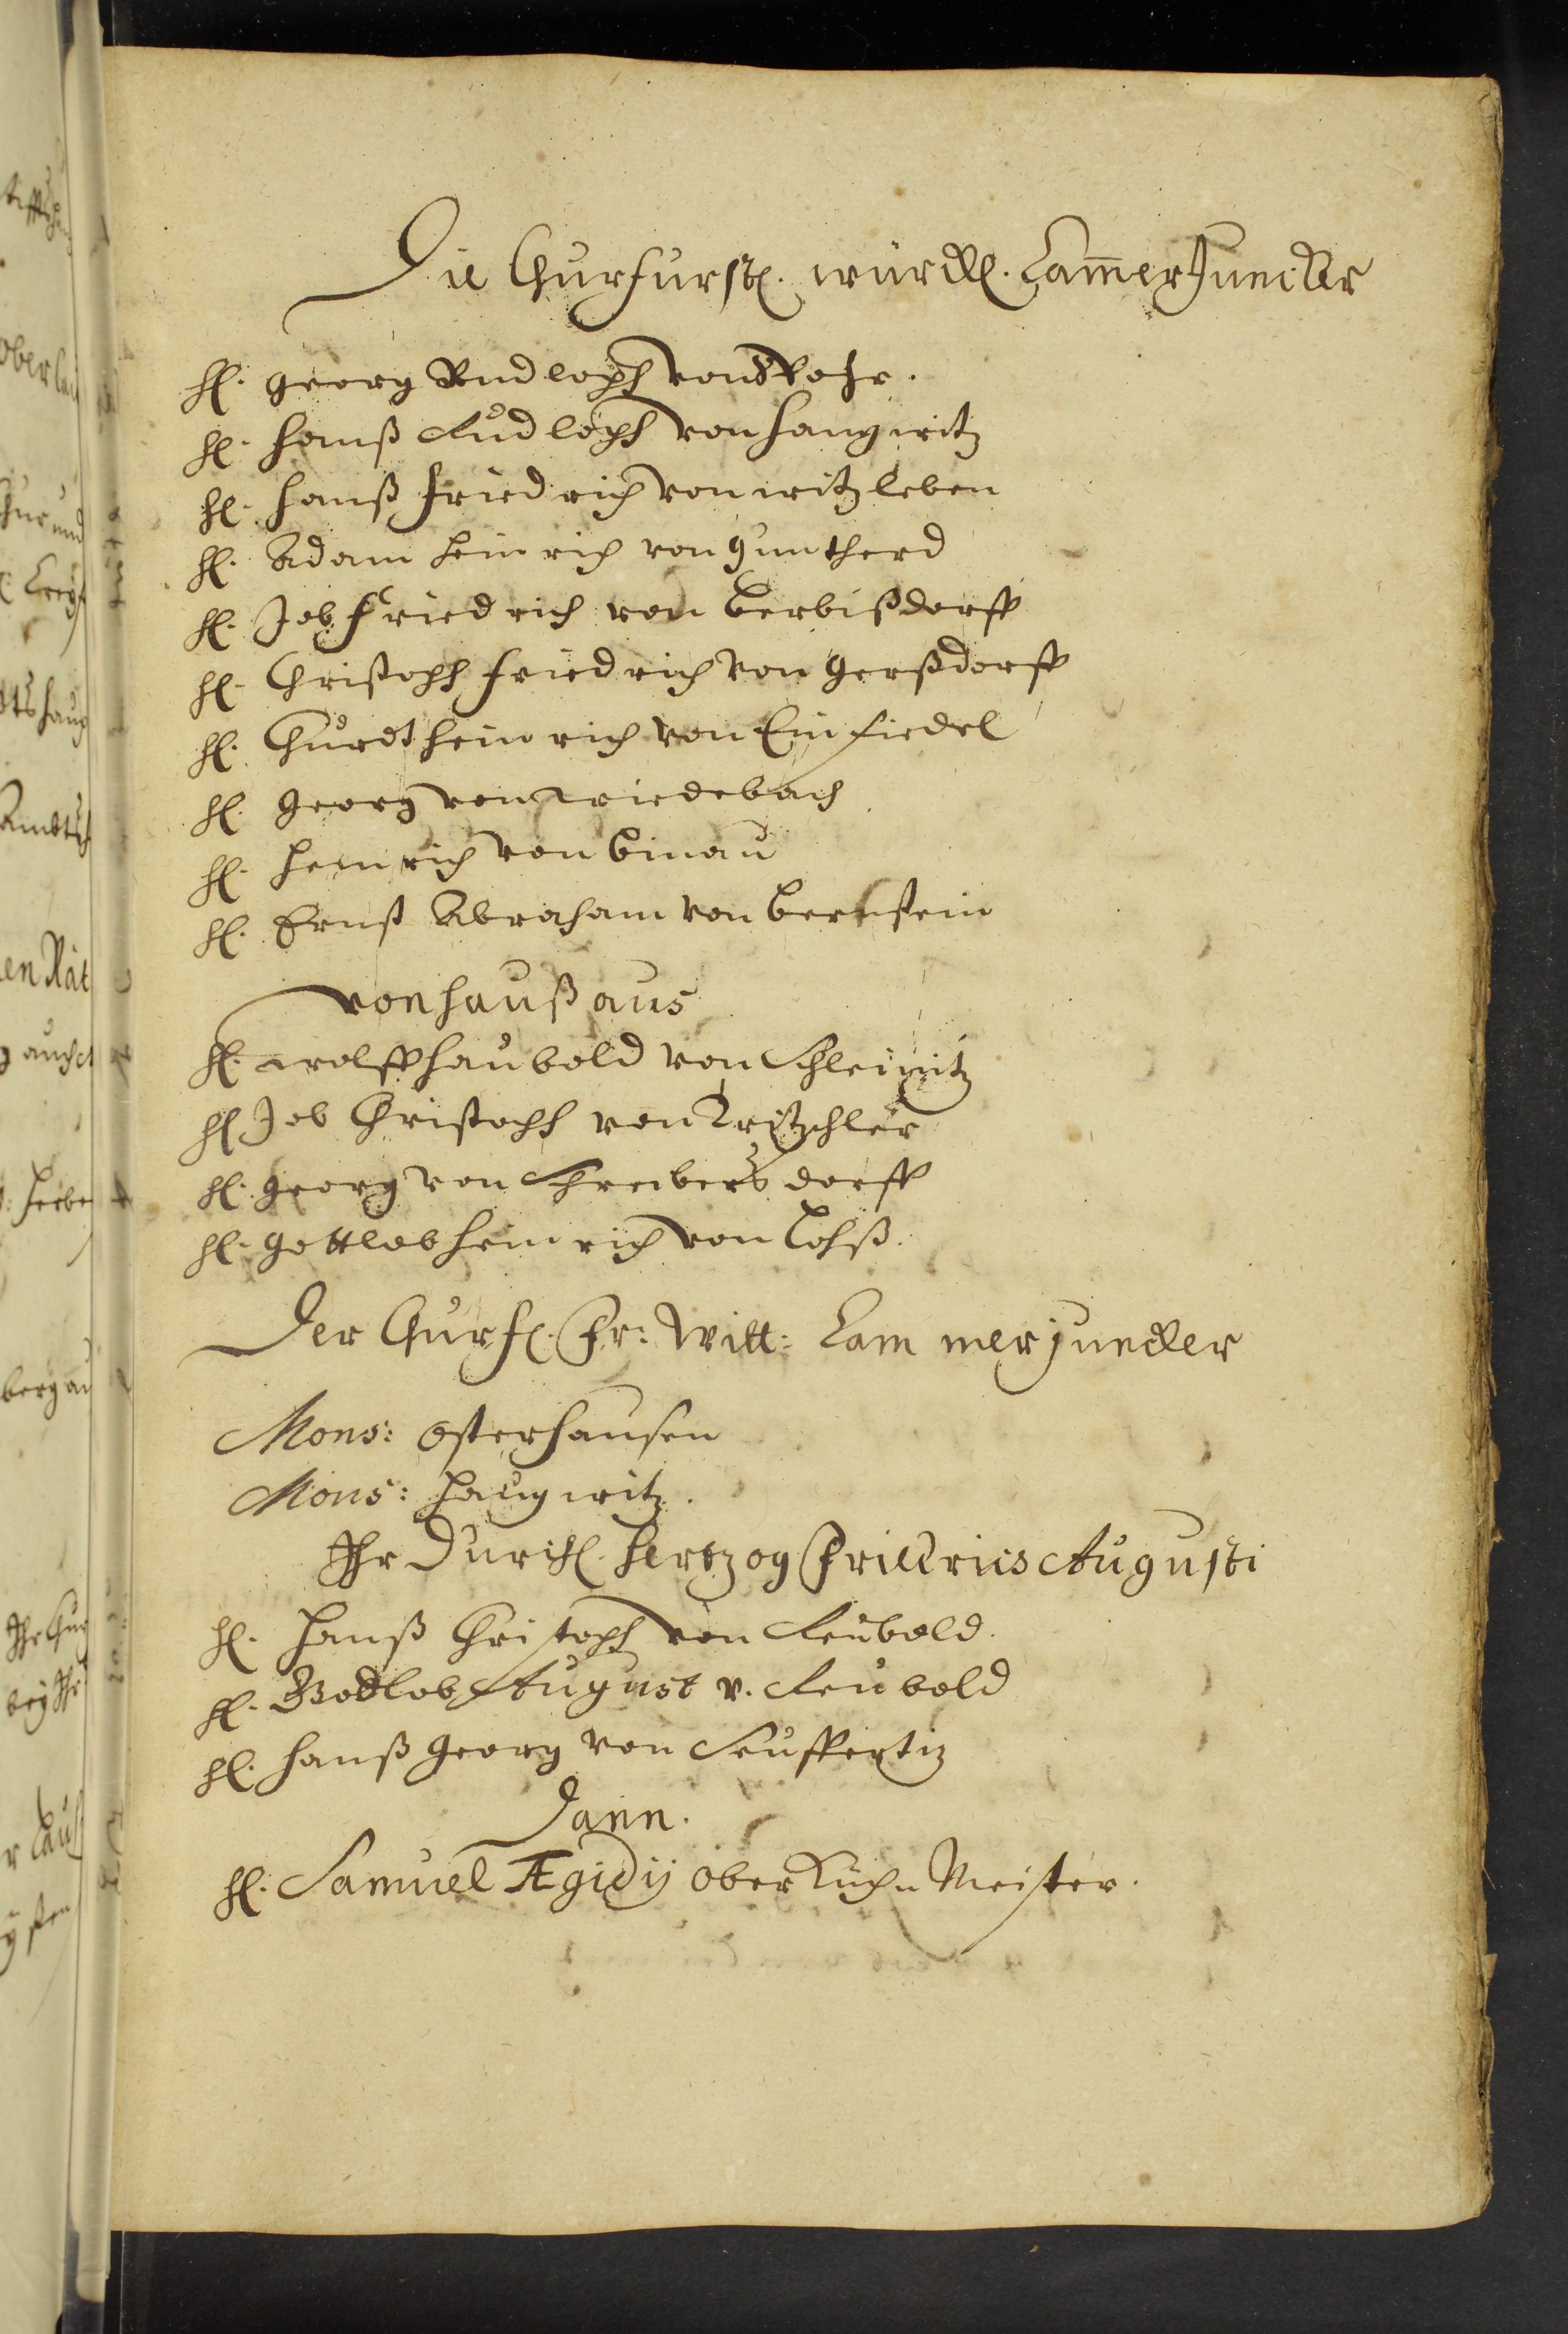 Die Churfurstl. würckl. Cam̅erJuncker
H. Georg Rudloph von Rohr.
H. Hanß Rudloph von Haugwitz
H. Hanß Friedrich von Witzleben
H. Adam Heinrich von Guntherd
H. Job Friedrich von Berbißdorff
H. Christoph Friedrich von Gerßdorff
H. Churdt Heinrich von Einsiedel
H. Georg von Wiedebach
H. Heinrich von Binau
H. Ernst Abraham von Bernstein
von Hauß aus
H. Wolff Haubold von Schleinitz
H Job Christoph von
H. Georg von Schreibersdorff
H. Gottlob Heinrich von Loß.
Der Churf. Fr: Witt: Cammerjuncker
Mons: Osterhausen
Mons: Haugwitz.
Ihr Durchl. Hertzog Augusti
H. Hanß Christoph von
H. Godlob August v.
H. Hanß Georg von
Dann.
H. Samuel Ægidij Ober Küchn Meister.